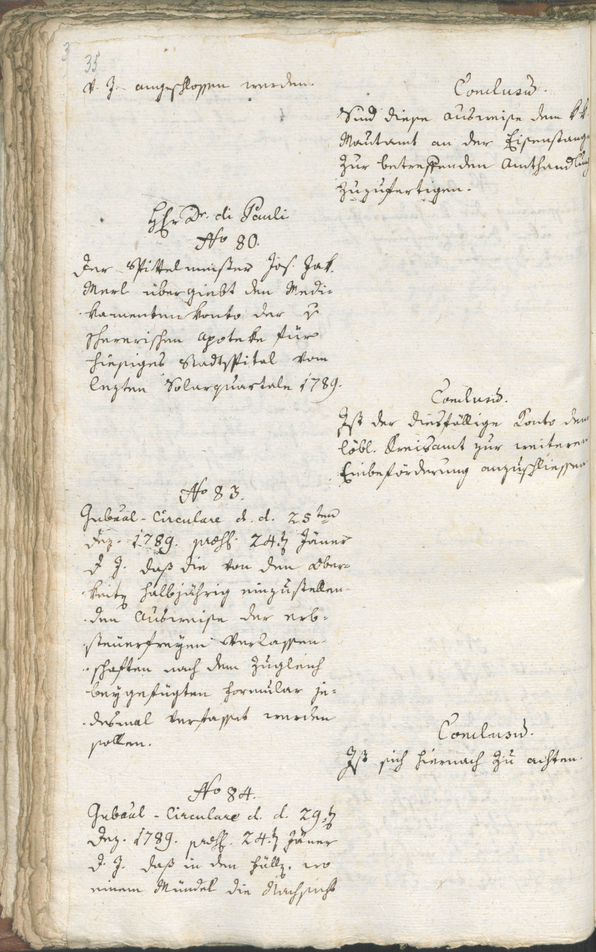 35
v. J. angeschlossen werden.
Conclusum.
Sind diese Ausweise dem kk
Mautamt an der Eisenstange
zur betreffenden Amthandlung
zuzufertigen.
Hr. Dr. di Pauli
No 80.
Der Spittelmeister Jos. Jak.
Merl übergiebt den Medi-
kamentenkonto der v
Scherrischen Apoteke für
hiesiges Stadtspital vom
lezten Solarquartale 1789.
Conclusum.
Ist der diesfällige Konto dem
löbl. Kreisamt zur weiteren
Einbeförderung anzuschliessen
No 83.
Gubernal-Circulare d. d. 25ten
Dez. 1789. præs. 24. Jäner
d. J. daß die von den Ober-
keiten halbjährig einzustellen-
den Ausweise der erb-
steuerfreyen Verlassen-
schaften nach dem zugleich
beygefügten Formular je-
desmal verfasst werden
sollen.
Conclusum.
Ist sich hiernach zu achten.
No 84.
Gubernal-Circulare d. d. 29.
Dez. 1789. præs. 24. Jäner
d. J. daß in den Fällen, wo
einem Mündel die Nachsicht